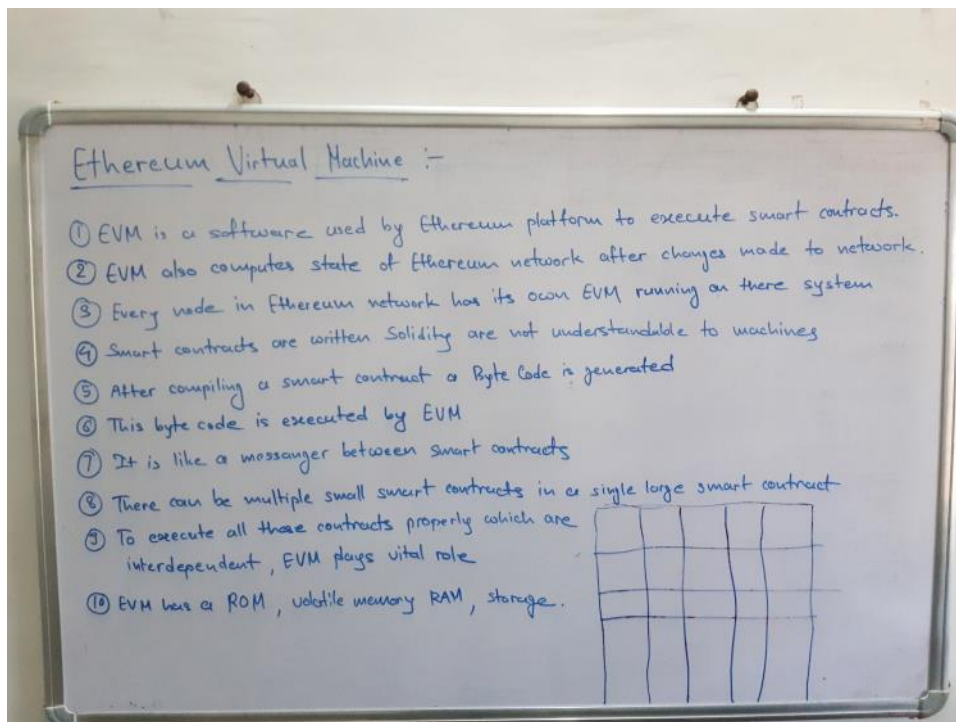 Ethereum Virtual Machine :-
① EVM is a software used by Ethereum platform to execute smart contracts.
② EVM also computes state of Ethereum network after changes made to network.
③ Every node in Ethereum network has its own EVM running on there system
④ Smart contracts are written Solidity are not understandable to machines
⑤ After compiling a smart contract a Byte Code is generated
⑥ This byte code is executed by EVM
⑦ It is like a messanger between smart contracts
⑧ There can be multiple small smart contracts in a single large smart contract
⑨ To execute all these contracts properly which are
interdependent, EVM plays vital role
⑩ EVM has a ROM, volatile memory RAM, storage.